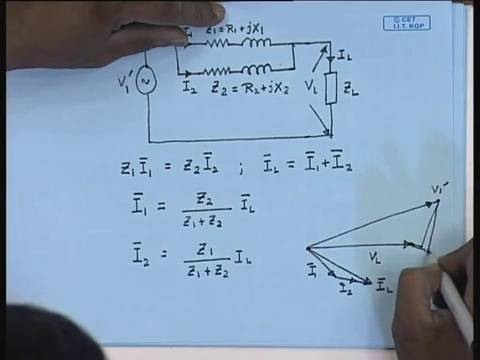 © CET
I.I.T. KGP
I₁ Z₁ = R₁ + jX₁
I_L
V₁′
I₂ Z₂ = R₂ + jX₂
V_L Z_L
Z₁ Ī₁ = Z₂ Ī₂ ; Ī_L = Ī₁ + Ī₂
Ī₁ = Z₂ / (Z₁ + Z₂) Ī_L
Ī₂ = Z₁ / (Z₁ + Z₂) I_L
V₁′
V_L
Ī₁ I₂ Ī_L